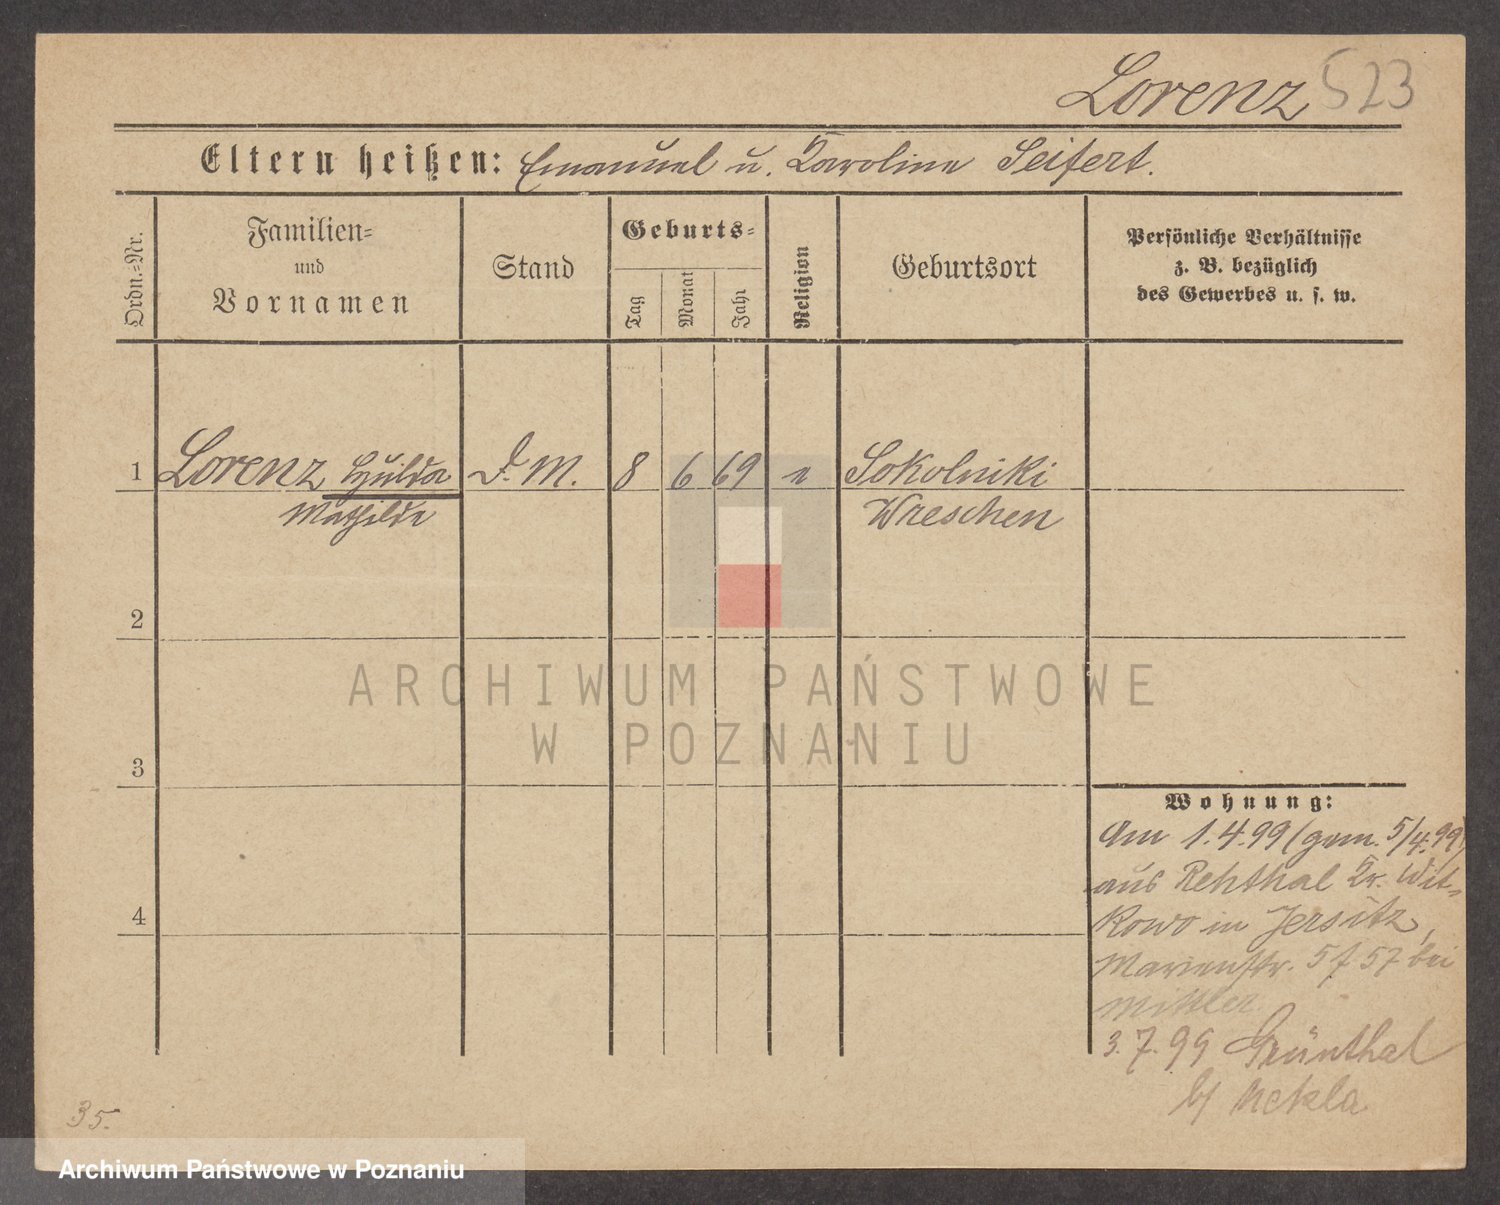 Lorenz 523
Eltern heißen: Emanuel u. Karoline Seifert.
Ordn.-Nr.
Familien-
und
Vornamen
Stand
Geburts-
Tag
Monat
Jahr
Religion
Geburtsort
Persönliche Verhältnisse
z. B. bezüglich
des Gewerbes u. s. w.
1 Lorenz Hulda D. M. 8 6 69 e Sokolniki
Mathilde Wreschen
2
ARCHIWUM PAŃSTWOWE
W POZNANIU
3
Wohnung:
Am 1.4.99 (gem. 5/4.99)
aus Rehthal Kr. Wit-
4
kowo in Jersitz,
Marienstr. 57 bei
Mittler
3.7.99 Grünthal
b/ Nekla
35.
Archiwum Państwowe w Poznaniu